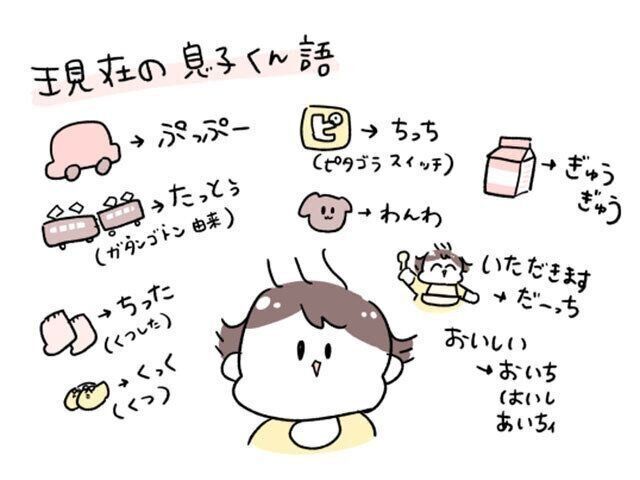 現在の息子くん語
→ ぷっぷー
→ たっとぅ
(ガタンゴトン由来)
→ ちった
(くつした)
→ くっく
(くつ)
ピ → ちっち
(ピタゴラスイッチ)
→ わんわ
→ ぎゅう
ぎゅう
いただきます
→ だーっち
おいしい
→ おいち
はいし
あいちィ